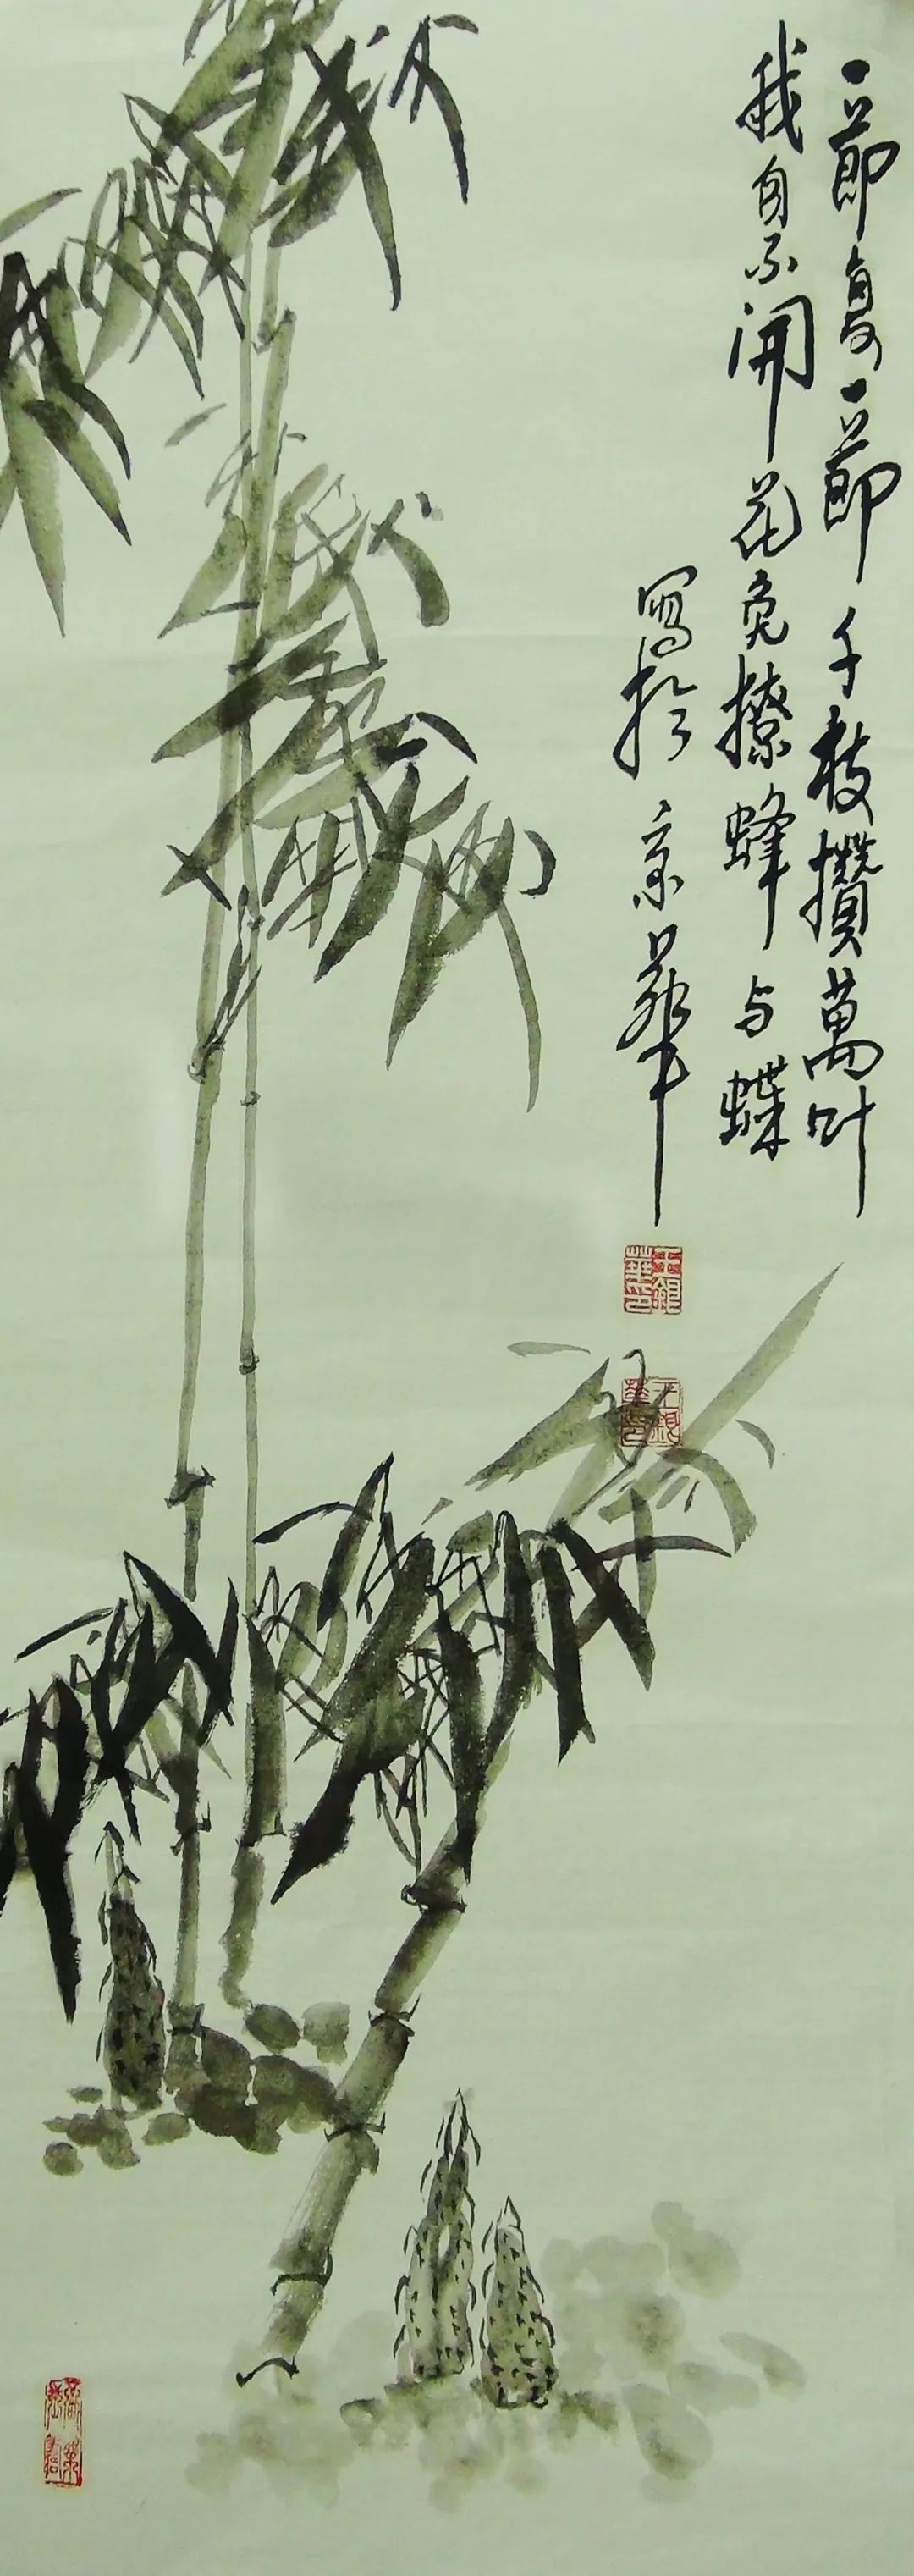 一節复一節千枝攢萬叶
我自不開花免撩蜂与蝶
寫於京華